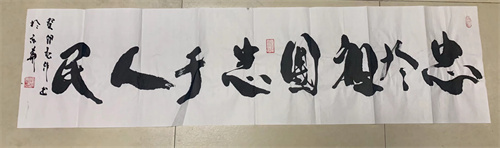 忠於祖國忠于人民
癸卯
於京華